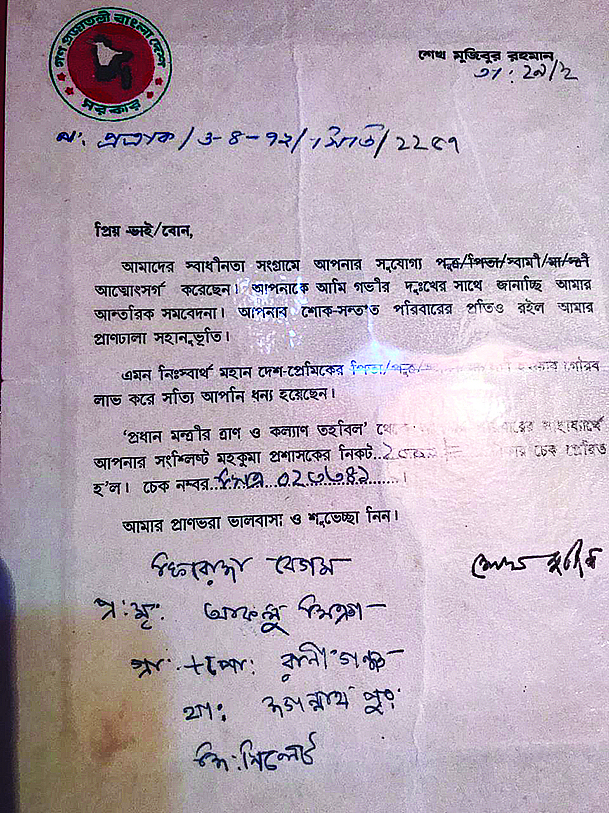 গণ প্রজাতন্ত্রী বাংলা দেশ
সরকার
শেখ মুজিবুর রহমান
তাং: ২৯/২
নং: প্রত্রাক/৩-৪-৭২/সিডি/২২৫৭
প্রিয় ভাই/বোন,
আমাদের স্বাধীনতা সংগ্রামে আপনার সুযোগ্য পুত্র/পিতা/স্বামী/মা/স্ত্রী
আত্মোৎসর্গ করেছেন। আপনাকে আমি গভীর দুঃখের সাথে জানাচ্ছি আমার
আন্তরিক সমবেদনা। আপনার শোক-সন্তপ্ত পরিবারের প্রতিও রইল আমার
প্রাণঢালা সহানুভূতি।
এমন নিঃস্বার্থ মহান দেশ-প্রেমিকের পিতা/পুত্র/ গৌরব
লাভ করে সত্যি আপনি ধন্য হয়েছেন।
'প্রধান মন্ত্রীর ত্রাণ ও কল্যাণ তহবিল' থেকে পরিবারের সাহায্যার্থে
আপনার সংশ্লিষ্ট মহকুমা প্রশাসকের নিকট চেক প্রেরিত
হ'ল। চেক নম্বর ০২৩৩৪৯ ।
আমার প্রাণভরা ভালবাসা ও শুভেচ্ছা নিন।
ফিরোজা বেগম
শেখ মুজিব
প্র: মৃ:
গ্রা: +পো: রানীগঞ্জ
থা: জগন্নাথ পুর
জি: সিলেট